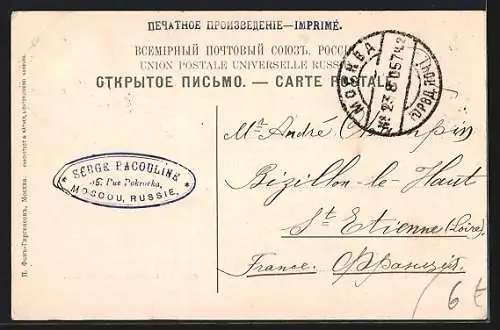 ПЕЧАТНОЕ ПРОИЗВЕДЕНІЕ—IMPRIMÉ.
ВСЕМІРНЫЙ ПОЧТОВЫЙ СОЮЗЪ. РОССІЯ
UNION POSTALE UNIVERSELLE RUSSIE
ОТКРЫТОЕ ПИСЬМО. — CARTE POSTALE
МОСКВА
23 8 05 7 Ч.
SERGE PACOULINE
Rue Pokrovka,
MOSCOU, RUSSIE.
Mr André
Bizillon-le-Haut
St Etienne (Loire)
France. Франція.
6€
П. Фонъ-Гиргенсонъ, Москва.